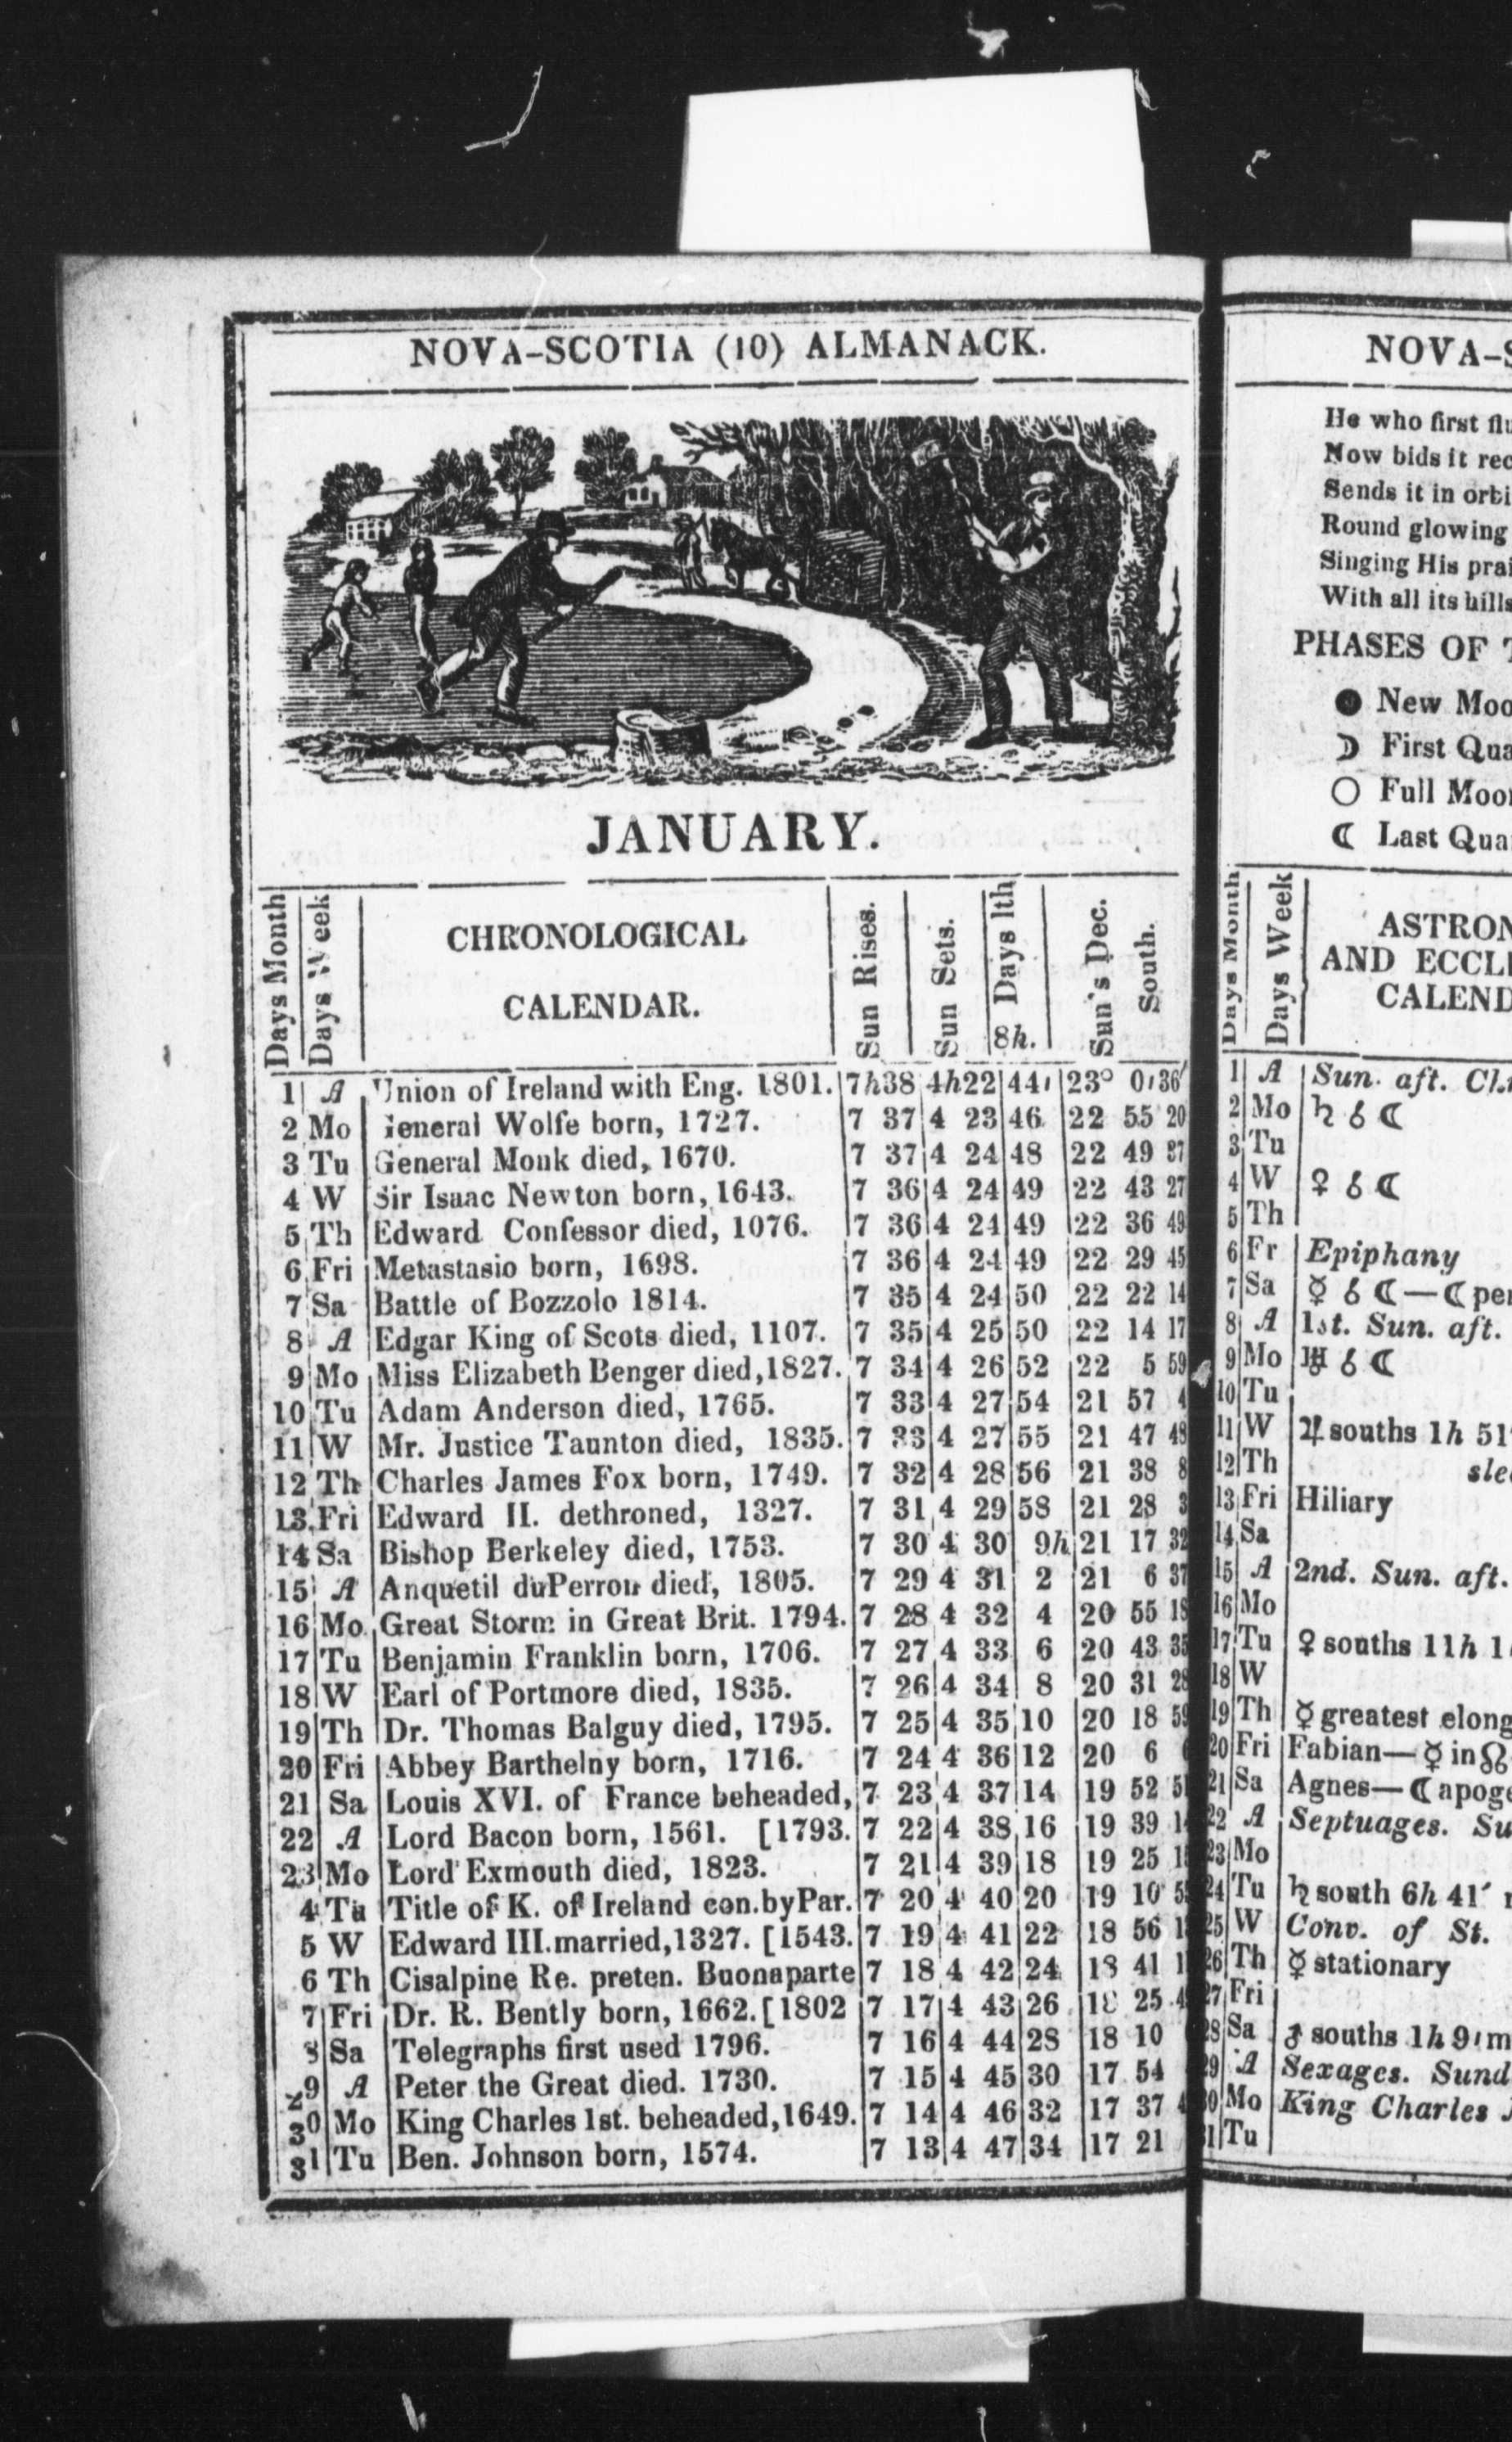 NOVA-SCOTIA (10) ALMANACK.
JANUARY.
Days Month
Days Week
CHRONOLOGICAL
CALENDAR.
Sun Rises.
Sun Sets.
Days lth
8h.
Sun's Dec.
South.
1 A Union of Ireland with Eng. 1801. 7h38 4h22 44′ 23° 0′36″
2 Mo General Wolfe born, 1727. 7 37 4 23 46 22 55 20
3 Tu General Monk died, 1670. 7 37 4 24 48 22 49 37
4 W Sir Isaac Newton born, 1643. 7 36 4 24 49 22 43 27
5 Th Edward Confessor died, 1076. 7 36 4 24 49 22 36 49
6 Fri Metastasio born, 1698. 7 36 4 24 49 22 29 45
7 Sa Battle of Bozzolo 1814. 7 35 4 24 50 22 22 14
8 A Edgar King of Scots died, 1107. 7 35 4 25 50 22 14 17
9 Mo Miss Elizabeth Benger died,1827. 7 34 4 26 52 22 5 59
10 Tu Adam Anderson died, 1765. 7 33 4 27 54 21 57 4
11 W Mr. Justice Taunton died, 1835. 7 33 4 27 55 21 47 48
12 Th Charles James Fox born, 1749. 7 32 4 28 56 21 38 8
13 Fri Edward II. dethroned, 1327. 7 31 4 29 58 21 28 3
14 Sa Bishop Berkeley died, 1753. 7 30 4 30 9h 21 17 32
15 A Anquetil duPerron died, 1805. 7 29 4 31 2 21 6 37
16 Mo Great Storm in Great Brit. 1794. 7 28 4 32 4 20 55 18
17 Tu Benjamin Franklin born, 1706. 7 27 4 33 6 20 43 35
18 W Earl of Portmore died, 1835. 7 26 4 34 8 20 31 28
19 Th Dr. Thomas Balguy died, 1795. 7 25 4 35 10 20 18 59
20 Fri Abbey Barthelny born, 1716. 7 24 4 36 12 20 6
21 Sa Louis XVI. of France beheaded, 7 23 4 37 14 19 52
22 A Lord Bacon born, 1561. [1793. 7 22 4 38 16 19 39
23 Mo Lord Exmouth died, 1823. 7 21 4 39 18 19 25
4 Tu Title of K. of Ireland con.byPar. 7 20 4 40 20 19 10
5 W Edward III.married,1327. [1543. 7 19 4 41 22 18 56
6 Th Cisalpine Re. preten. Buonaparte 7 18 4 42 24 18 41
7 Fri Dr. R. Bently born, 1662.[1802 7 17 4 43 26 18 25
8 Sa Telegraphs first used 1796. 7 16 4 44 28 18 10
29 A Peter the Great died. 1730. 7 15 4 45 30 17 54
30 Mo King Charles 1st. beheaded,1649. 7 14 4 46 32 17 37
31 Tu Ben. Johnson born, 1574. 7 13 4 47 34 17 21
NOVA-S
He who first flu
Now bids it rec
Sends it in orbi
Round glowing
Singing His prai
With all its hills
PHASES OF
● New Moo
☽ First Qua
○ Full Moo
☾ Last Qua
Days Month
Days Week
ASTRON
AND ECCL
CALEND
1 A Sun. aft. Ch
2 Mo ♄ ☌ ☾
3 Tu
4 W ♀ ☌ ☾
5 Th
6 Fr Epiphany
7 Sa ☿ ☌ ☾—☾ per
8 A 1st. Sun. aft.
9 Mo ♅ ☌ ☾
10 Tu
11 W ♃ souths 1h 51′
12 Th sle
13 Fri Hiliary
14 Sa
15 A 2nd. Sun. aft.
16 Mo
17 Tu ♀ souths 11h 1
18 W
19 Th ☿ greatest elong
20 Fri Fabian—☿ in ☊
21 Sa Agnes—☾ apoge
22 A Septuages. Su
23 Mo
24 Tu ♄ south 6h 41′
25 W Conv. of St.
26 Th ☿ stationary
27 Fri
28 Sa ♂ souths 1h 9′ m
29 A Sexages. Sund
30 Mo King Charles
31 Tu